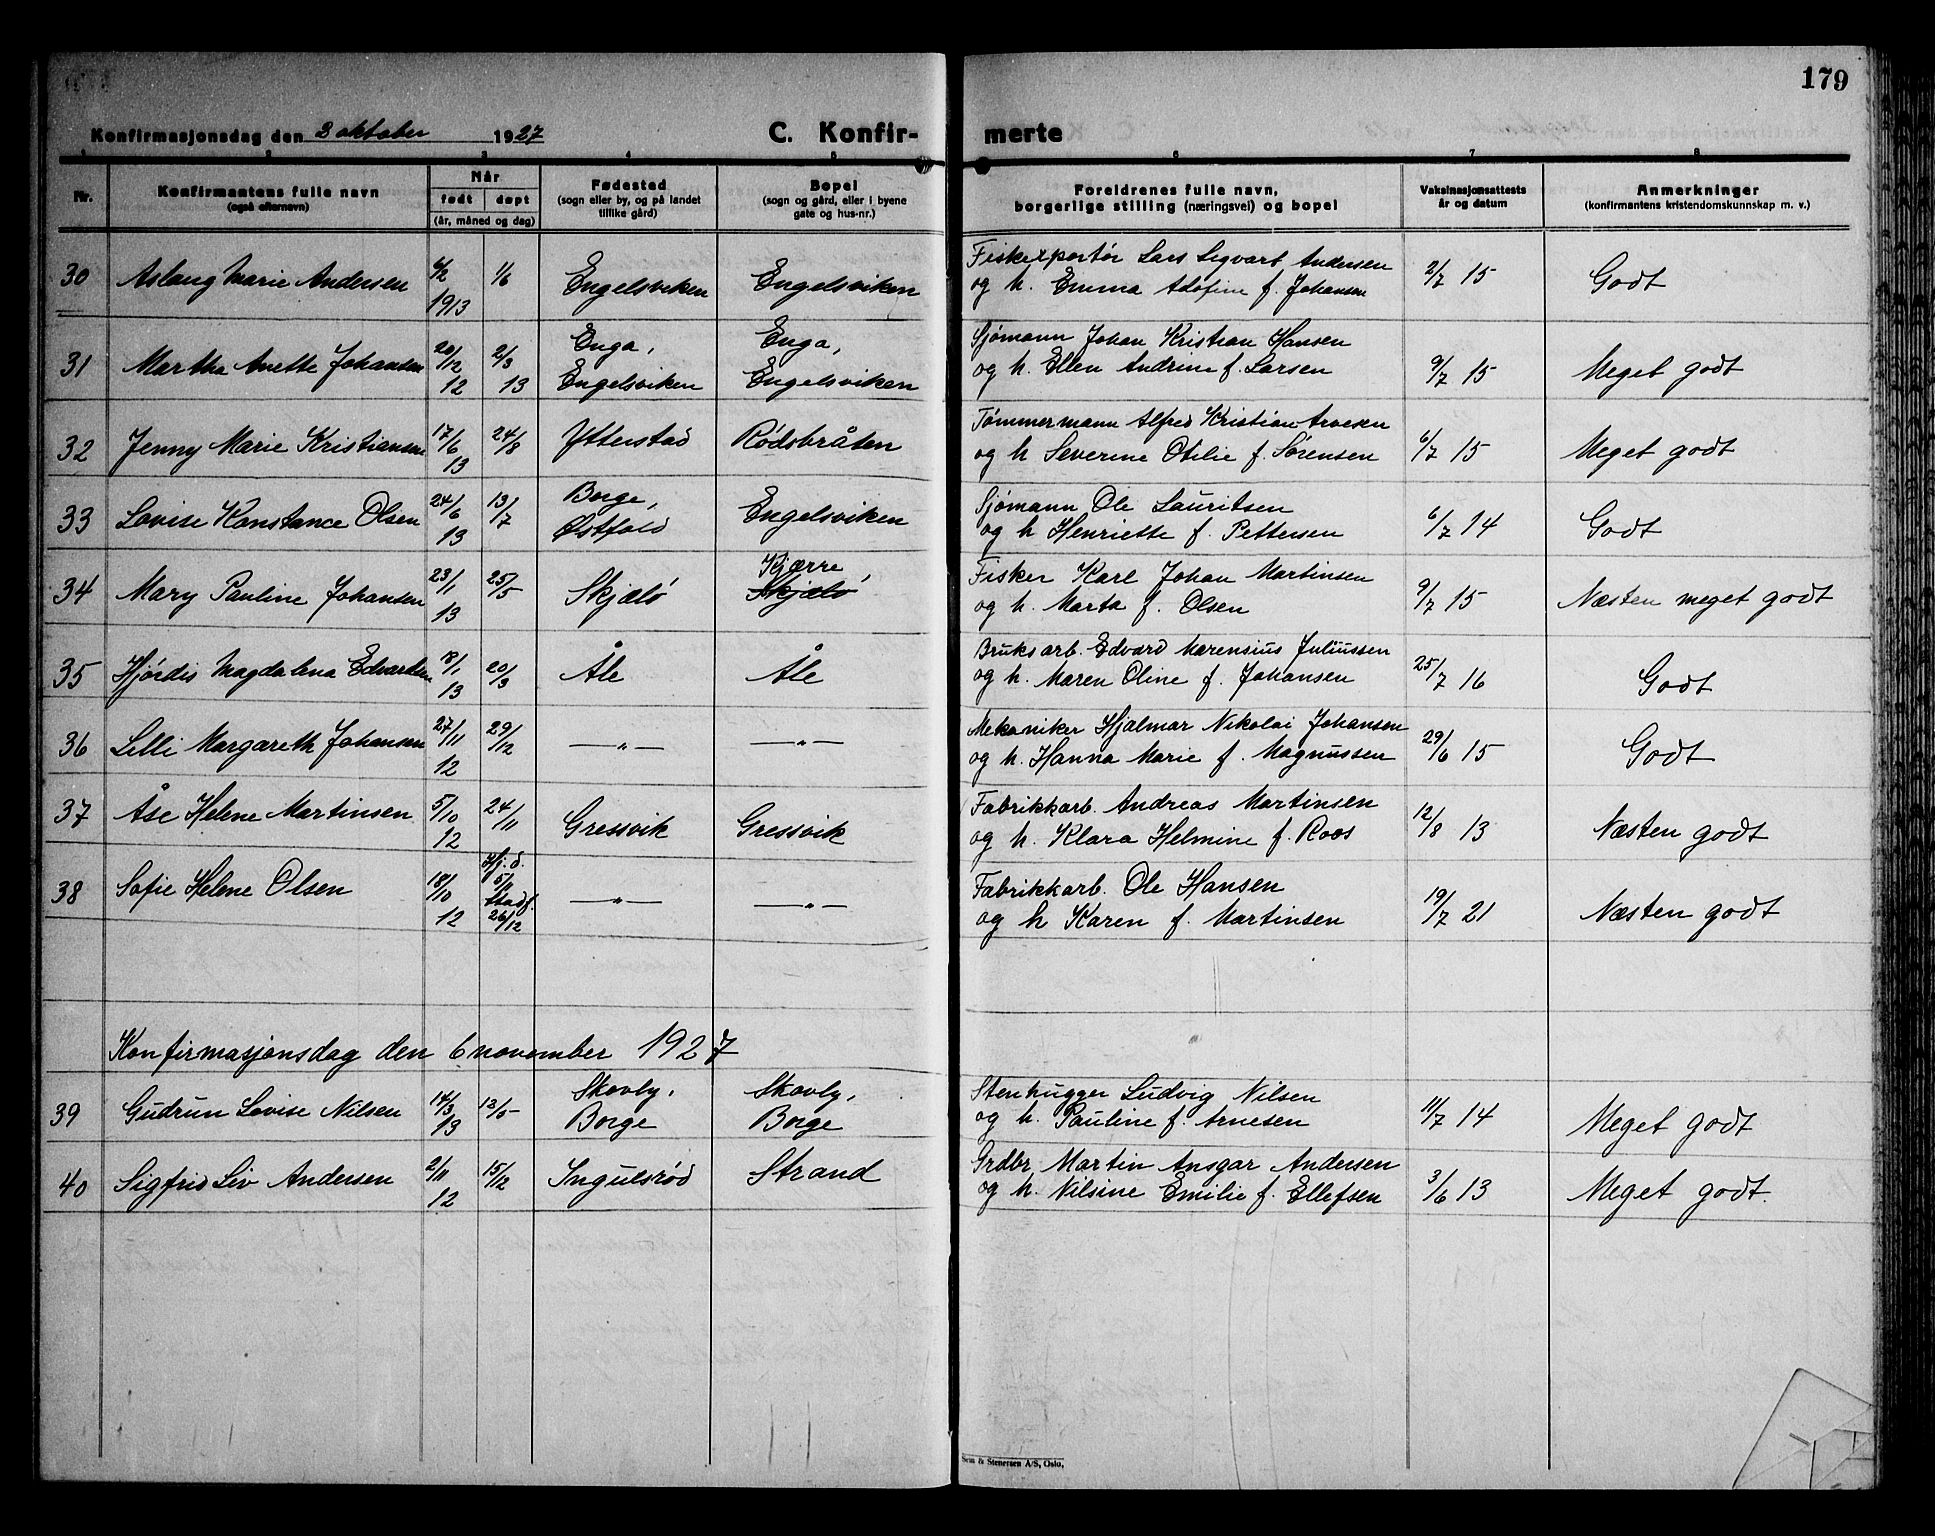 179
Konfirmasjonsdag den 2 oktober 1927 C. Konfir- merte
1 2 3 4 5 6 7 8
Nr. Konfirmantens fulle navn (også efternavn) Når født døpt (år, måned og dag) Fødested (sogn eller by, og på landet tillike gård) Bopel (sogn og gård, eller i byene gate og hus-nr.) Foreldrenes fulle navn, borgerlige stilling (næringsvei) og bopel Vaksinasjonsattests år og datum Anmerkninger (konfirmantens kristendomskunnskap m. v.)
30 Aslaug Marie Andersen 6/2 1913 1/6 Engelsviken Engelsviken Fiskexportør Lars Sigvart Andersen
og h. Emma Adofine f. Johansen 2/7 15 Godt
31 Martha Anette Johansen 20/12 12 2/3 13 Enga, Engelsviken Enga, Engelsviken Sjømann Johan Kristian Hansen
og h. Ellen Andrine f. Larsen 9/7 15 Meget godt
32 Jenny Marie Kristiansen 17/6 13 24/8 Ytterstad Rødsbråten Tømmermann Alfred Kristian Arvesen
og h Severine Otilie f. Sørensen 6/7 15 Meget godt
33 Lovise Konstance Olsen 24/6 13 13/7 Borge, Østfold Engelsviken Sjømann Ole Lauritsen
og h Henriette f. Pettersen 6/7 14 Godt
34 Mary Pauline Johansen 23/1 13 25/5 Skjælø Kjærre Skjælø Fisker Karl Johan Martinsen
og h. Marta f. Olsen 9/7 15 Næsten meget godt
35 Hjørdis Magdalena Edvardsen 18/1 13 20/3 Åle Åle Bruksarb. Edvard Marensius Juliussen
og h. Maren Oline f. Johansen 25/7 16 Godt
36 Lilli Margareth Johansen 27/11 12 29/12 — „ — — „ — Mekaniker Hjalmar Nikolai Johansen
og h. Hanna Marie f. Magnussen 29/6 15 Godt
37 Åse Helene Martinsen 5/10 12 24/11 Gressvik Gressvik Fabrikkarb. Andreas Martinsen
og h. Klara Helmine f. Roos 12/8 13 Næsten godt
38 Sofie Helene Olsen 18/10 12 Hj.d. 5/11 Stadf. 26/12 — „ — — „ — Fabrikkarb. Ole Hansen
og h Karen f. Martinsen 19/7 21 Næsten godt
Konfirmasjonsdag den 6 november 1927
39 Gudrun Lovise Nilsen 14/3 13 13/5 Skovly, Borge Skovly, Borge Stenhugger Ludvig Nilsen
og h. Pauline f. Arnesen 11/7 14 Meget godt
40 Sigfrid Liv Andersen 2/11 12 15/12 Ingulsrød Strand Grdbr Martin Ansgar Andersen
og h. Nilsine Emilie f. Ellefsen 3/6 13 Meget godt.
Sem & Stenersen A/S, Oslo.